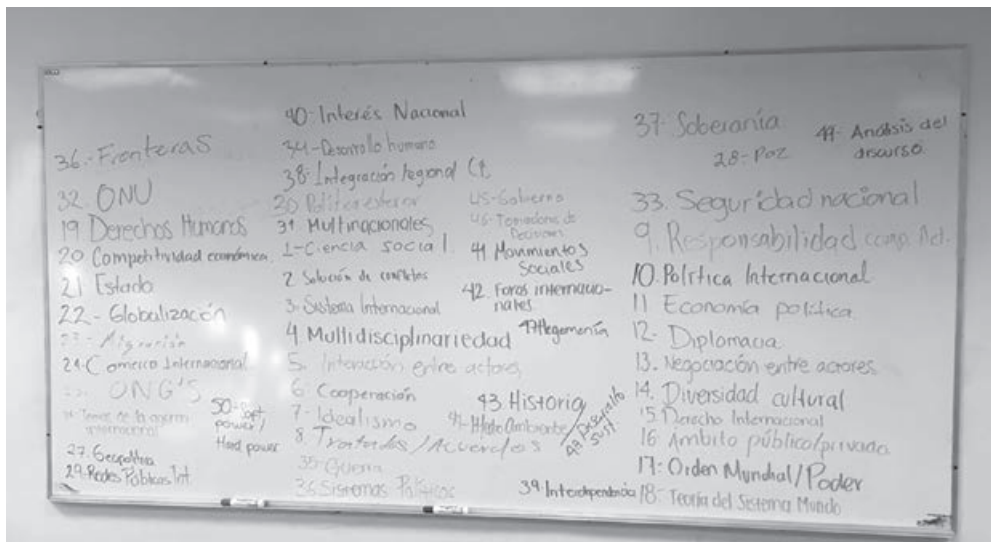 36.-Fronteras
32. ONU
19 Derechos Humanos
20 Competitividad económica.
21 Estado
22.- Globalización
23.- Migración
24-Comercio Internacional
ONG'S
internacional
27. Geopolítica
29-Redes Públicas Int.
50-Soft
power/
Hard power
40-Interés Nacional
34-Desarrollo humano
38-Integración regional
30 Política exterior
31 Multinacionales
1-Ciencia social.
2 Solución de conflictos
3-Sistema Internacional
4 Multidisciplinariedad
5. Interacción entre actores
6 Cooperación
7-Idealismo
8. Tratados/Acuerdos
35-Guerra
36 Sistemas Políticos
45-Gobierno
46-Tomadores de
Decisiones
41 Movimientos
Sociales
42. Foros internacio-
nales
47Hegemonía
43. Historia
Medio Ambiente
Desarrollo
Sust.
39-Interdependencia
37- Soberanía
28-Paz
49- Análisis del
discurso.
33. Seguridad nacional
9. Responsabilidad comp. Act.
10. Política Internacional
11 Economía política
12- Diplomacia
13. Negociación entre actores
14. Diversidad cultural
15. Derecho Internacional
16 Ambito público/privado
17: Orden Mundial/Poder
18- Teoría del Sistema Mundo